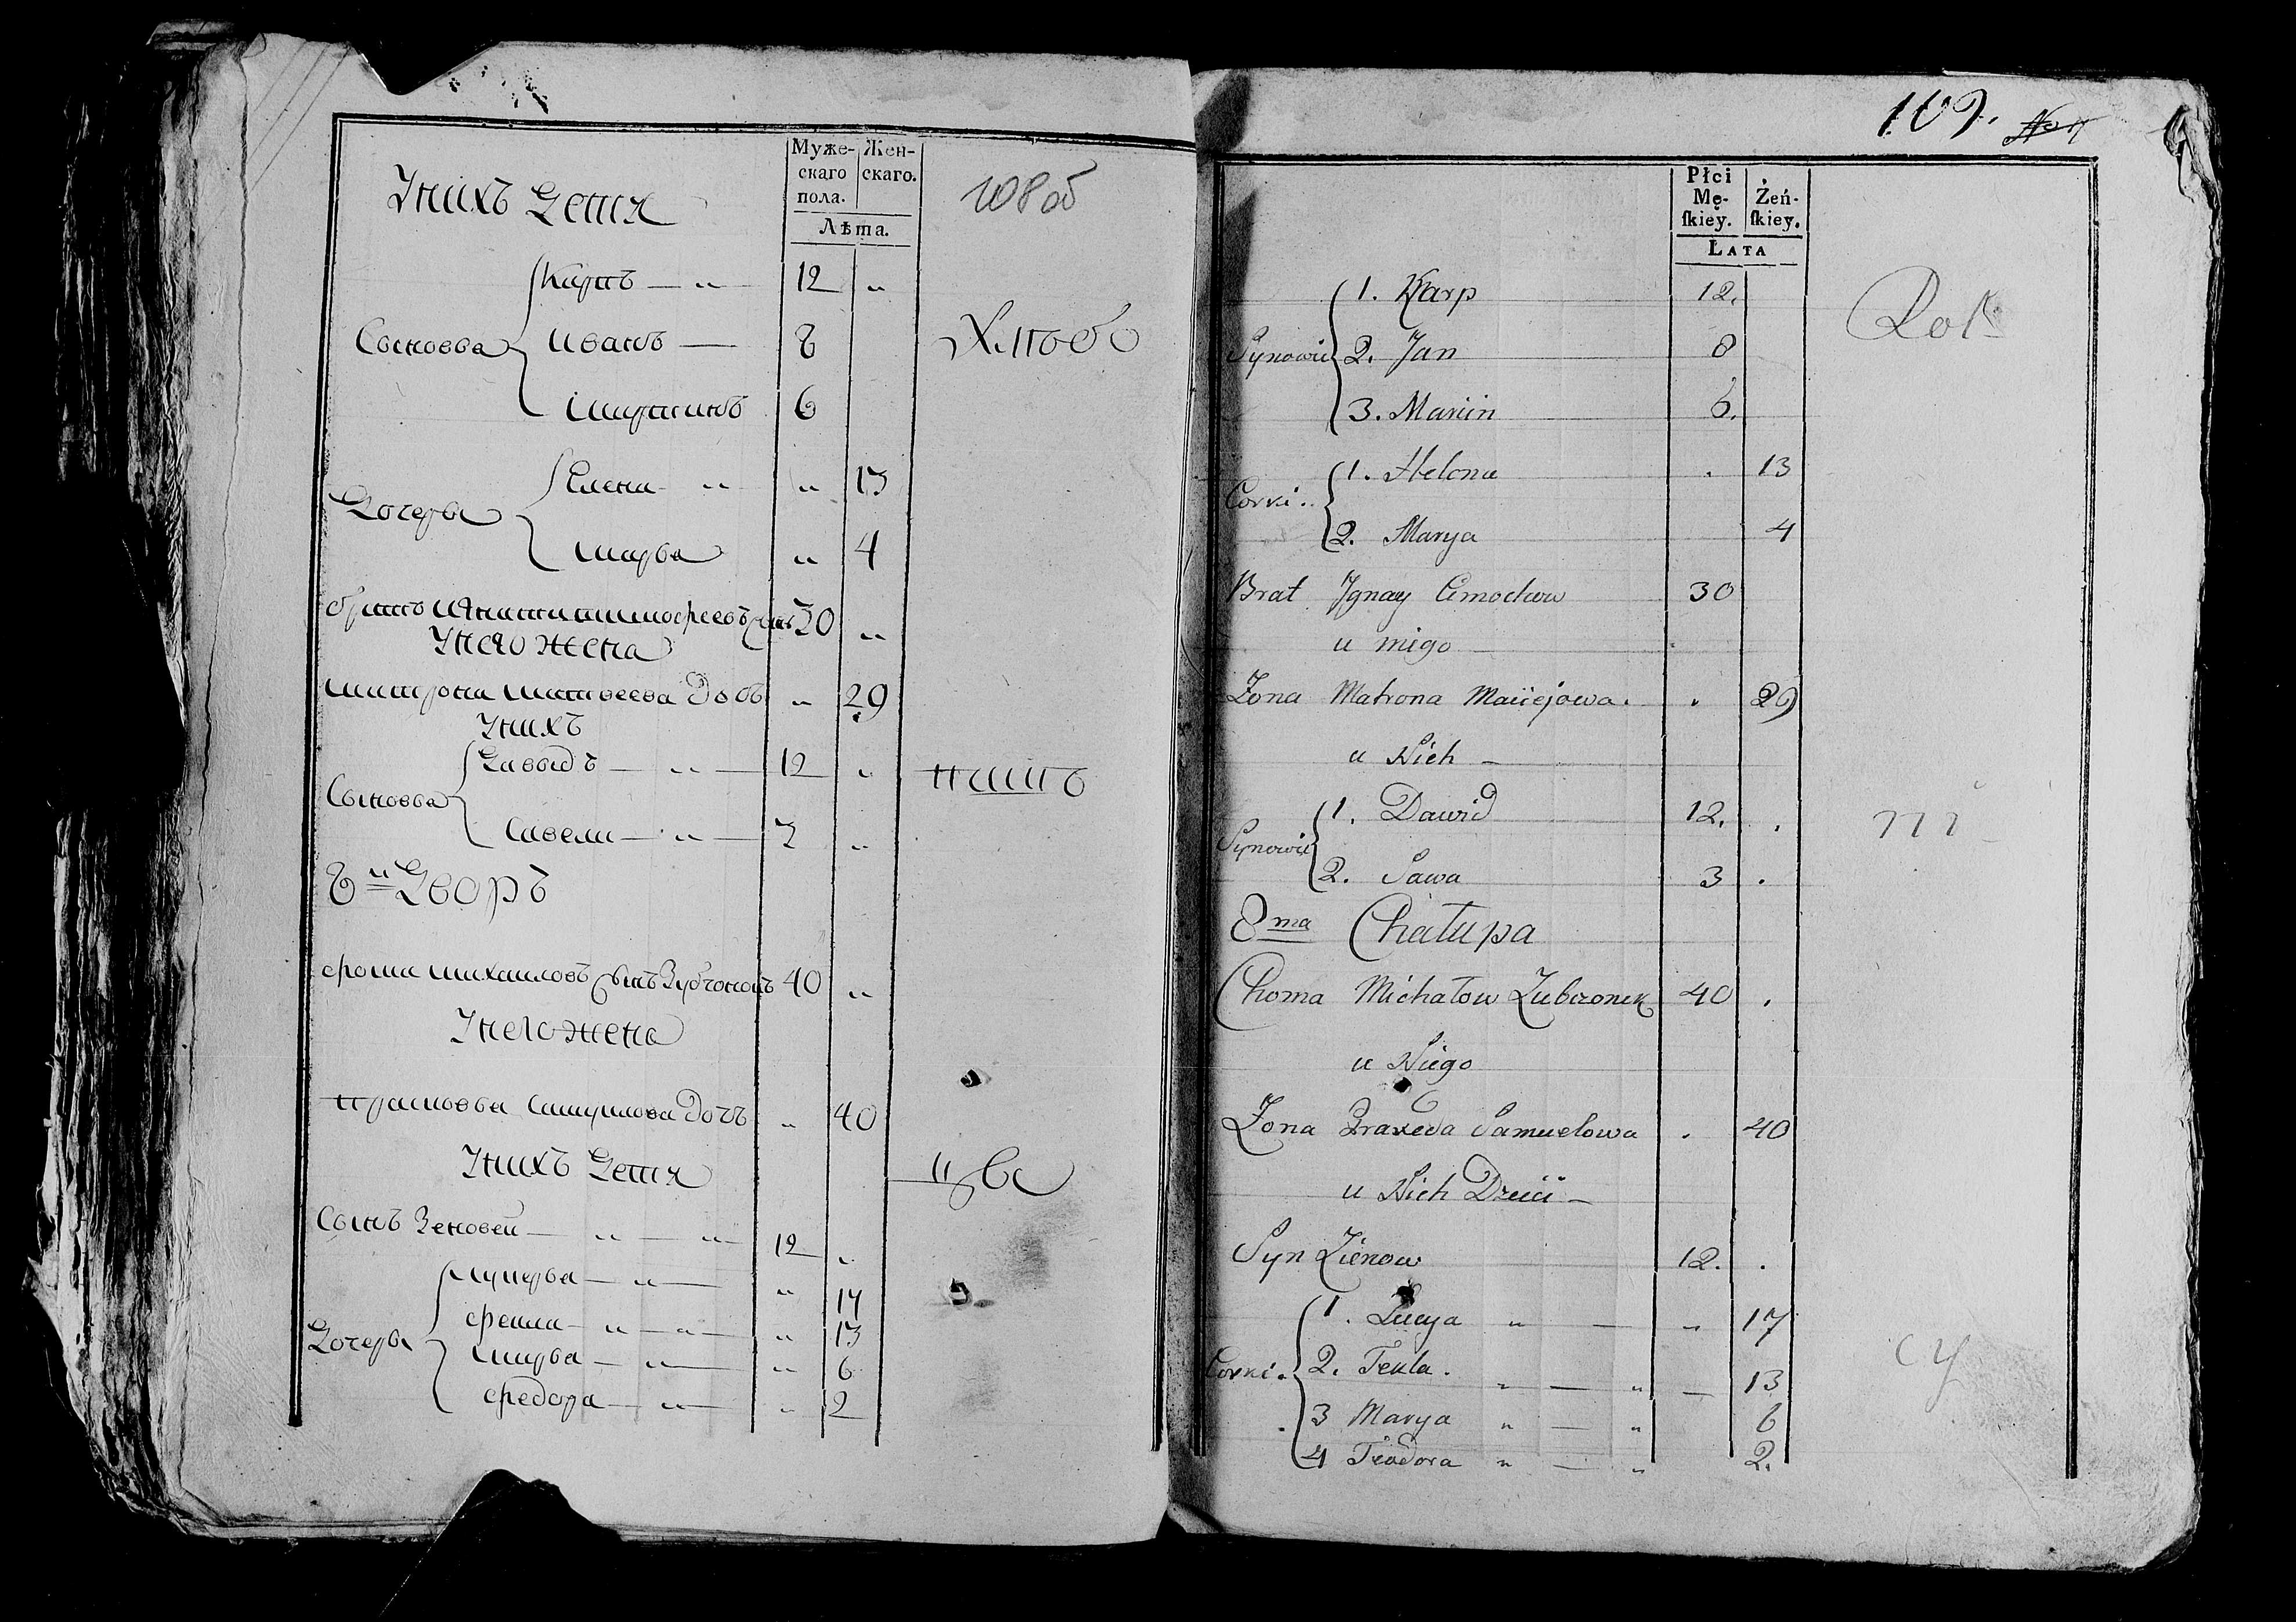 Муже-
скаго
пола.
Жен-
скаго.
Лѣта.
108 об
Унихъ Дети
Сыновья
Карпъ 12 "
Иванъ 8
Мартинъ 6
Дочерьи
Елена " 13
Марья " 4
братъ Игнати тимофеевъ сынъ 30 "
Унего жена
матрона матвеева дочь " 29
Унихъ
Сыновья
Давыдъ 12 "
Савели 3 "
8й Дворъ
фома михаиловъ сынъ Зубчонокъ 40 "
Унего жена
прасковья самуилова дочь " 40
Унихъ Дети
Сынъ Зеновей 12 "
Дочерьи
лукерья " 17
фекла " 13
марья " 6
федора " 2
109.
Płci
Mę-
skiey.
Żeń-
skiey.
LATA
Synowie
1. Karp 12.
2. Jan 8
3. Marcin 6.
Corki
1. Helena . 13
2. Marya 4
Brat Jgnacy Cimochow 30
u niego
Zona Matrona Maciejowa . 29
u Nich
Synowie
1. Dawid 12. .
2. Sawa 3 .
8ma Chałupa
Choma Michałow Zubczonek 40 .
u Niego
Zona Praxeda Samuelowa . 40
u Nich Dzieci
Syn Zienow 12. .
Corki
1. Lucya " — " 17
2. Tekla. " — " — 13
3 Marya " — " 6
4 Teodora " — " 2.